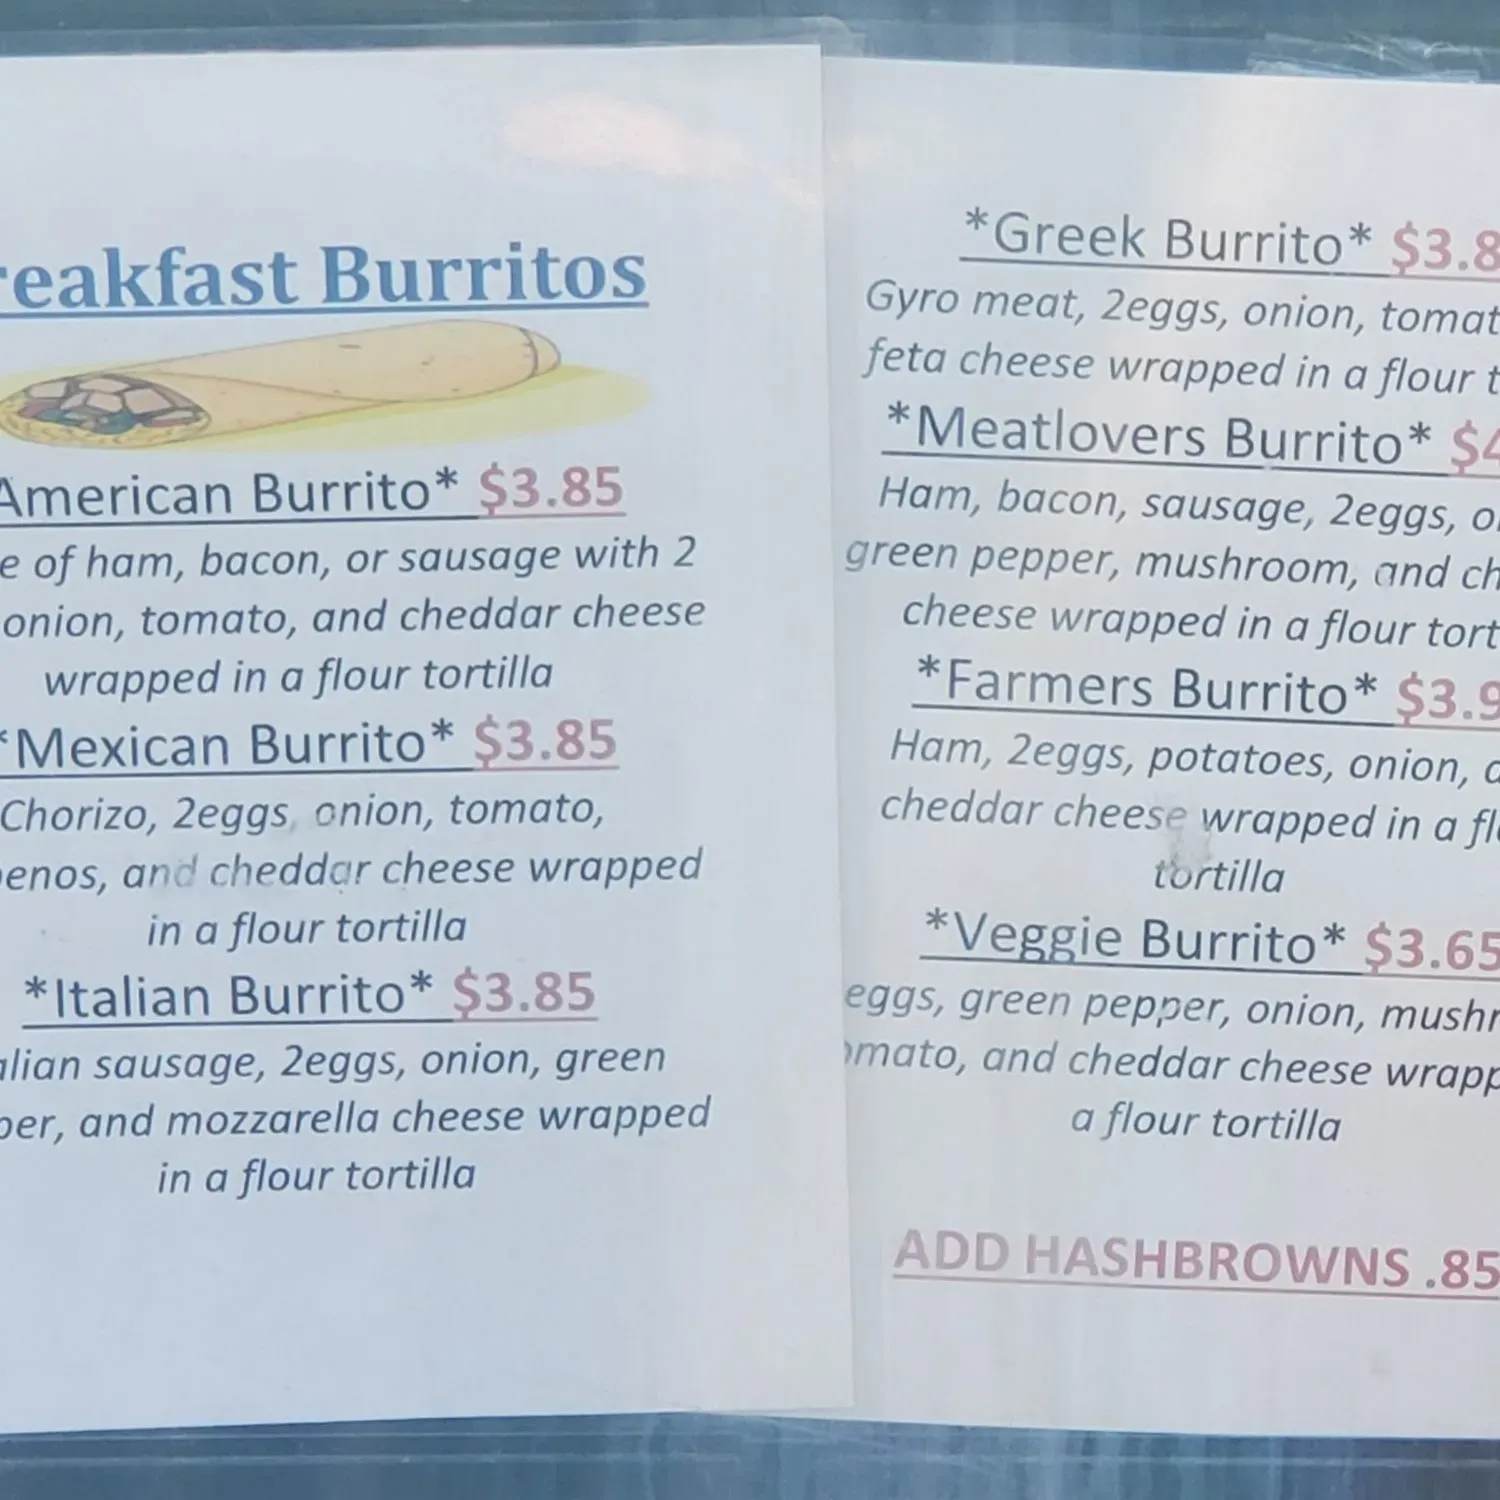 reakfast Burritos
American Burrito* $3.85
e of ham, bacon, or sausage with 2
onion, tomato, and cheddar cheese
wrapped in a flour tortilla
*Mexican Burrito* $3.85
Chorizo, 2eggs, onion, tomato,
enos, and cheddar cheese wrapped
in a flour tortilla
*Italian Burrito* $3.85
alian sausage, 2eggs, onion, green
per, and mozzarella cheese wrapped
in a flour tortilla
*Greek Burrito* $3.8
Gyro meat, 2eggs, onion, tomat
feta cheese wrapped in a flour t
*Meatlovers Burrito* $4
Ham, bacon, sausage, 2eggs, o
green pepper, mushroom, and ch
cheese wrapped in a flour tort
*Farmers Burrito* $3.9
Ham, 2eggs, potatoes, onion, a
cheddar cheese wrapped in a fl
tortilla
*Veggie Burrito* $3.65
eggs, green pepper, onion, mushr
omato, and cheddar cheese wrapp
a flour tortilla
ADD HASHBROWNS .85